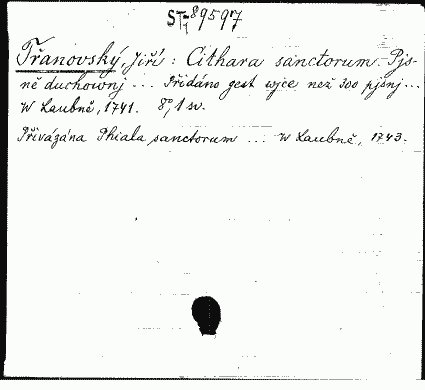 ST-1 89597
Třanovský, Jiří: Cithara sanctorum. Pjs-
ně duchownj ... Přidáno gest wjce než 300 pjsnj...
W Laubně, 1741. 8°, 1 sv.
Přivázána Phiala sanctorum ... W Laubně, 1743.